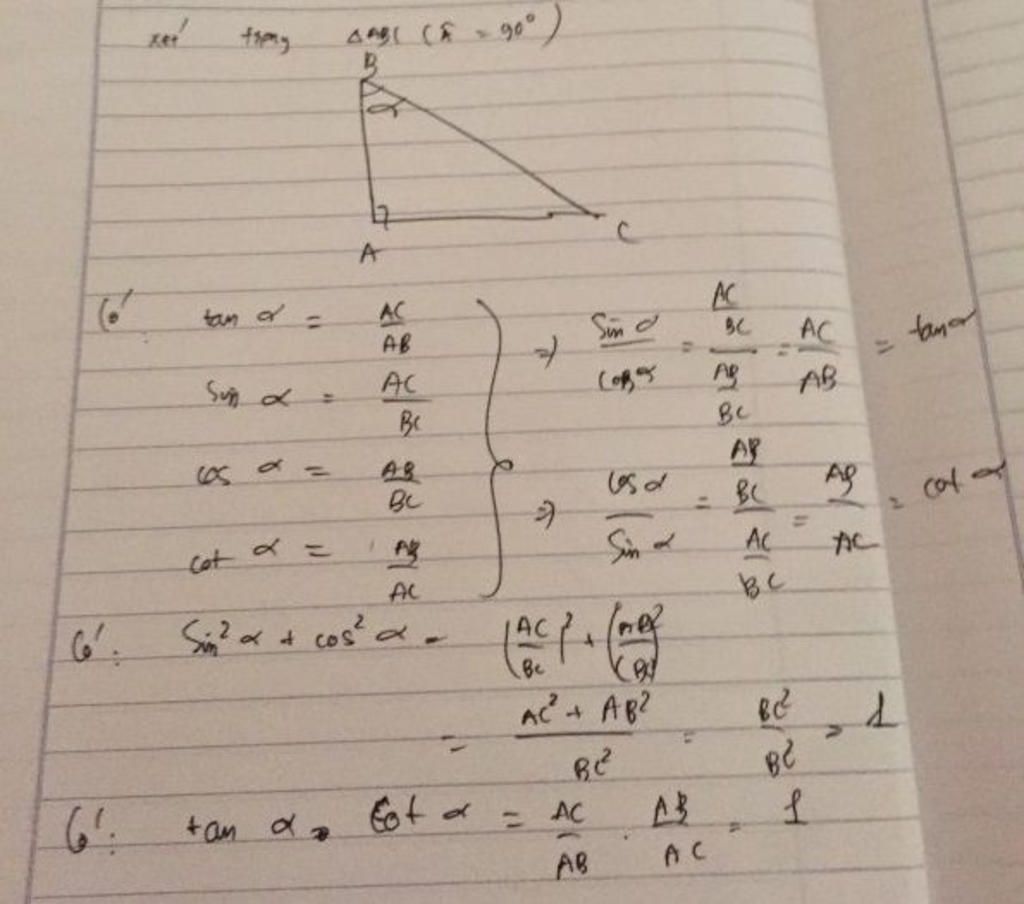 xét trong △ABC (Â = 90°)
B
α
A
C
Có: tan α = AC/AB
sin α = AC/BC
cos α = AB/BC
cot α = AB/AC
=> Sin α / cos α = (AC/BC) / (AB/BC) = AC/AB = tan α
=> cos α / Sin α = (AB/BC) / (AC/BC) = AB/AC = cot α
Có: Sin² α + cos² α = (AC/BC)² + (AB/BC)²
= (AC² + AB²) / BC² = BC²/BC² = 1
Có: tan α . Cot α = AC/AB . AB/AC = 1